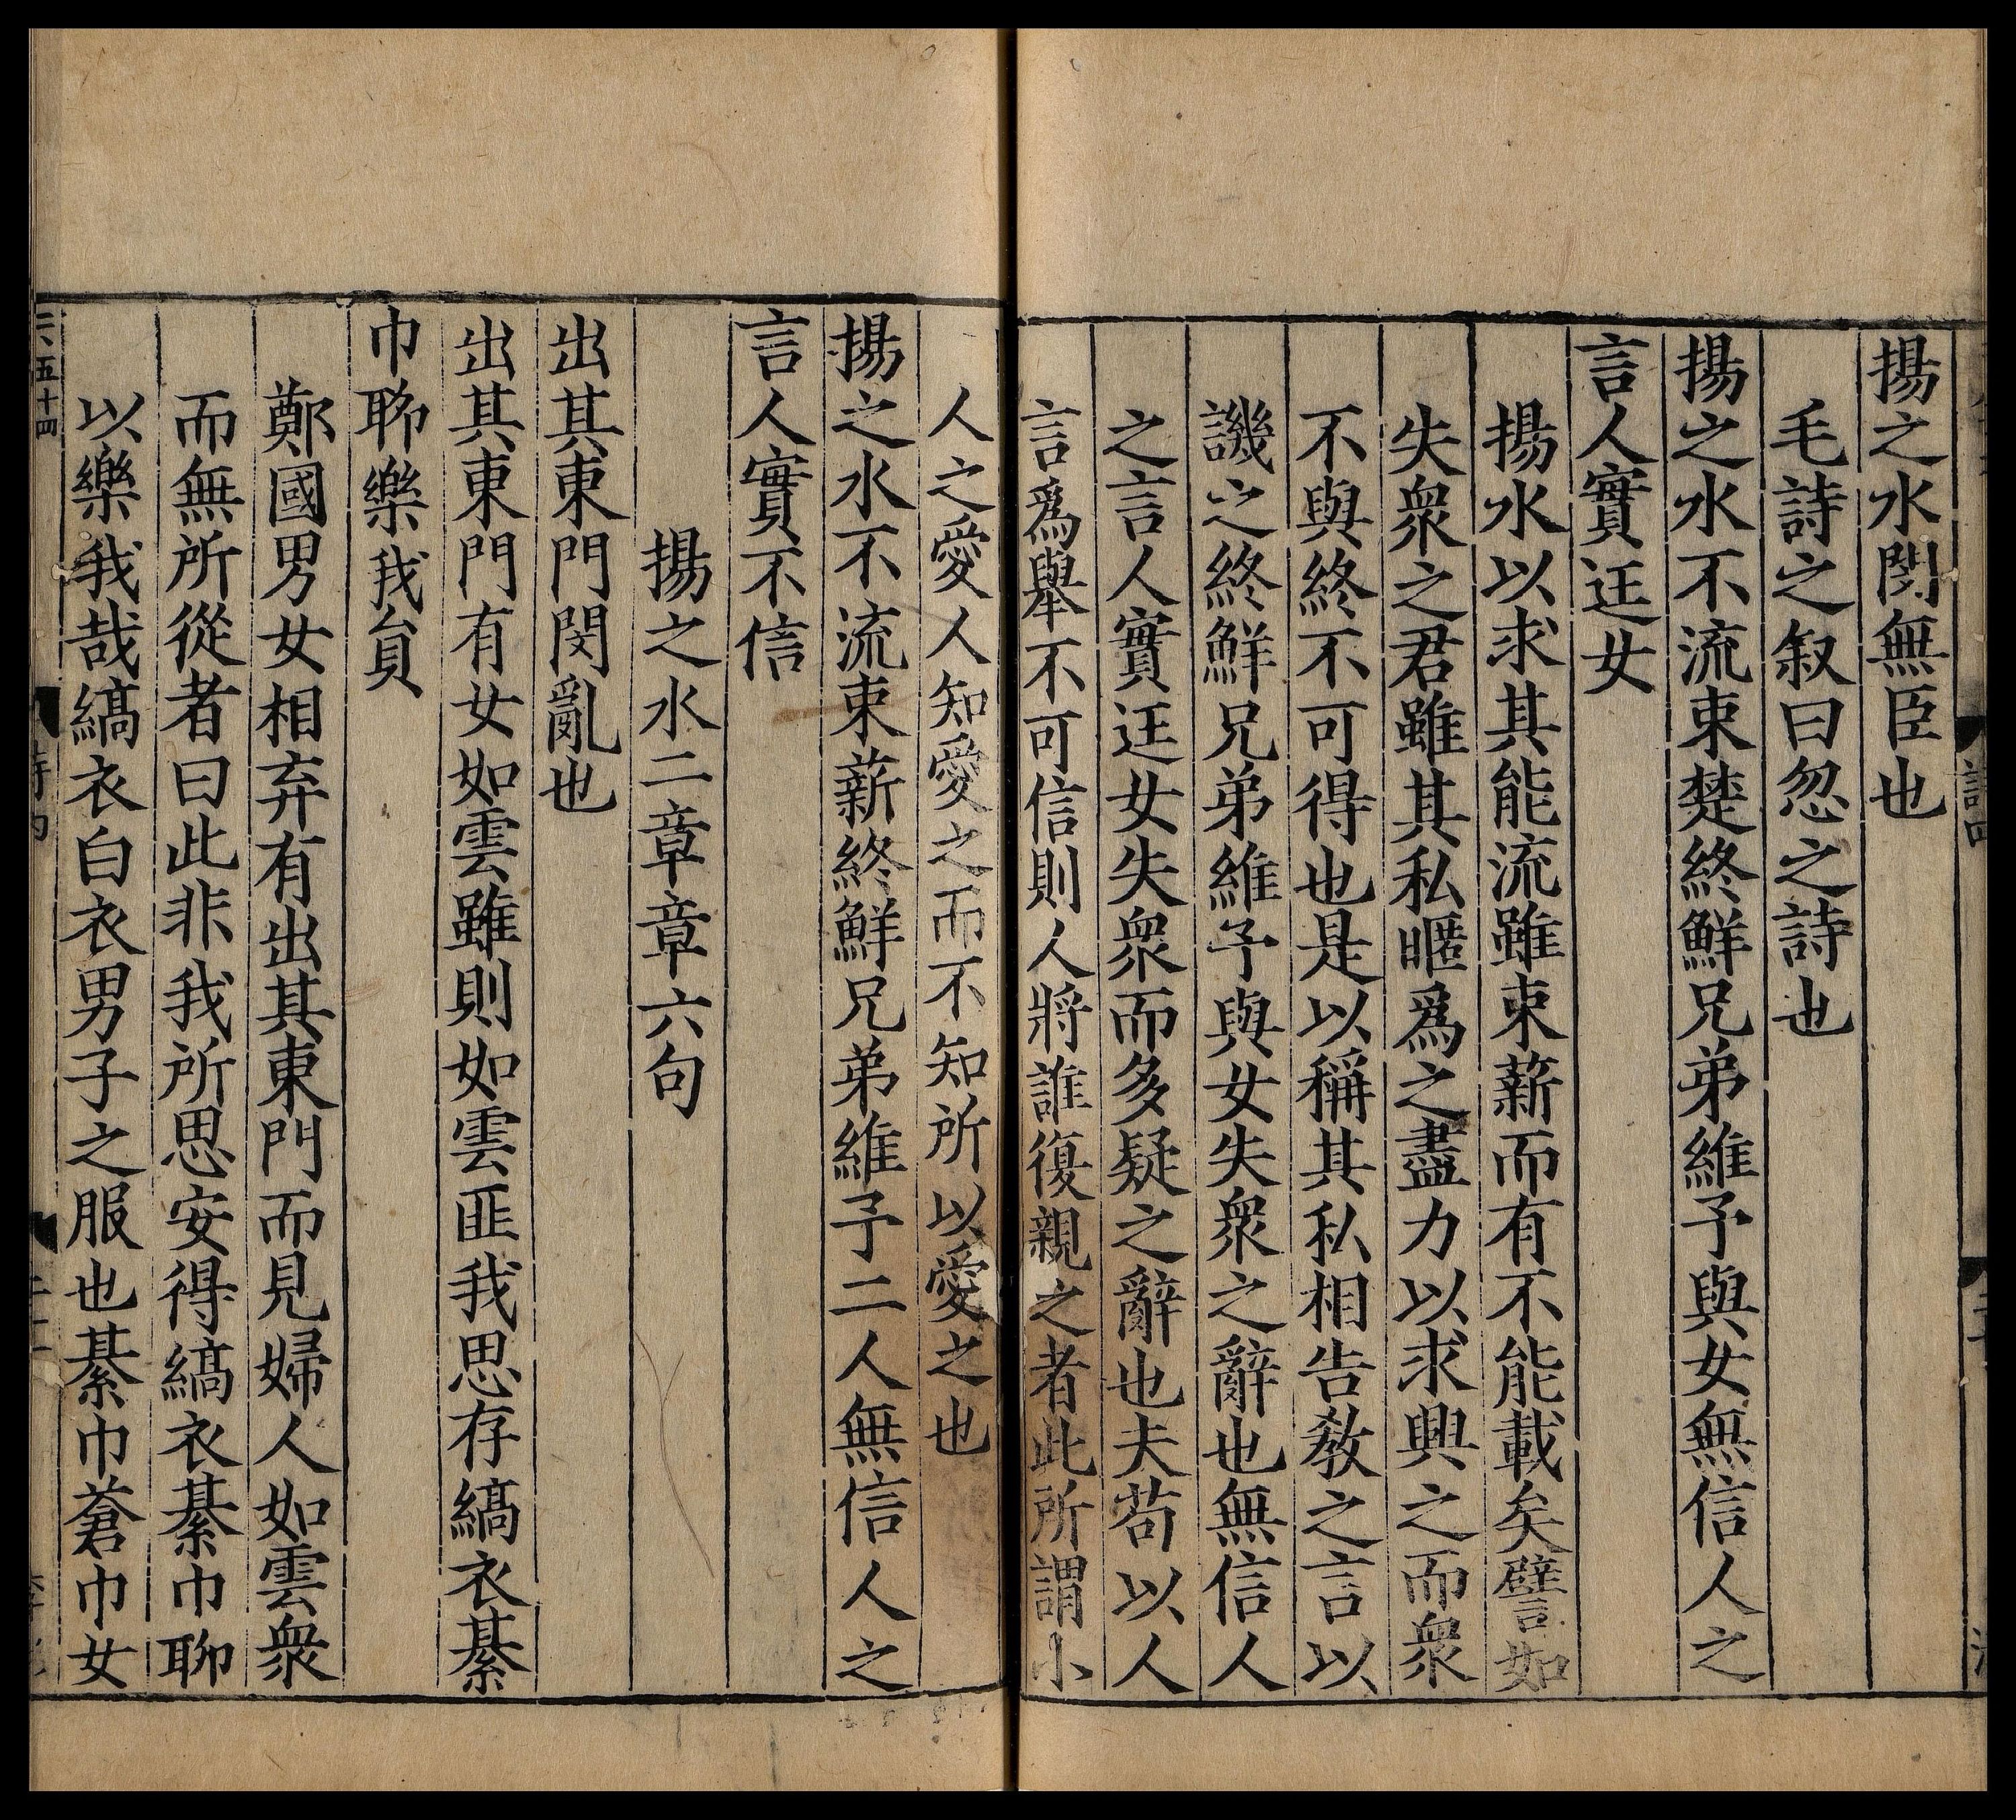 揚之水閔無臣也
毛詩之叙曰忽之詩也
揚之水不流束楚終鮮兄弟維予與女無信人之
言人實迋女
揚水以求其能流雖束薪而有不能載矣譬如
失衆之君雖其私暱爲之盡力以求興之而衆
不與終不可得也是以稱其私相告教之言以
譏之終鮮兄弟維予與女失衆之辭也無信人
之言人實迋女失衆而多疑之辭也夫苟以人
言爲舉不可信則人將誰復親之者此所謂小
人之愛人知愛之而不知所以愛之也
揚之水不流束薪終鮮兄弟維予二人無信人之
言人實不信
揚之水二章章六句
出其東門閔亂也
出其東門有女如雲雖則如雲匪我思存縞衣綦
巾聊樂我員
鄭國男女相弃有出其東門而見婦人如雲衆
而無所從者曰此非我所思安得縞衣綦巾聊
以樂我哉縞衣白衣男子之服也綦巾蒼巾女
二、五十四